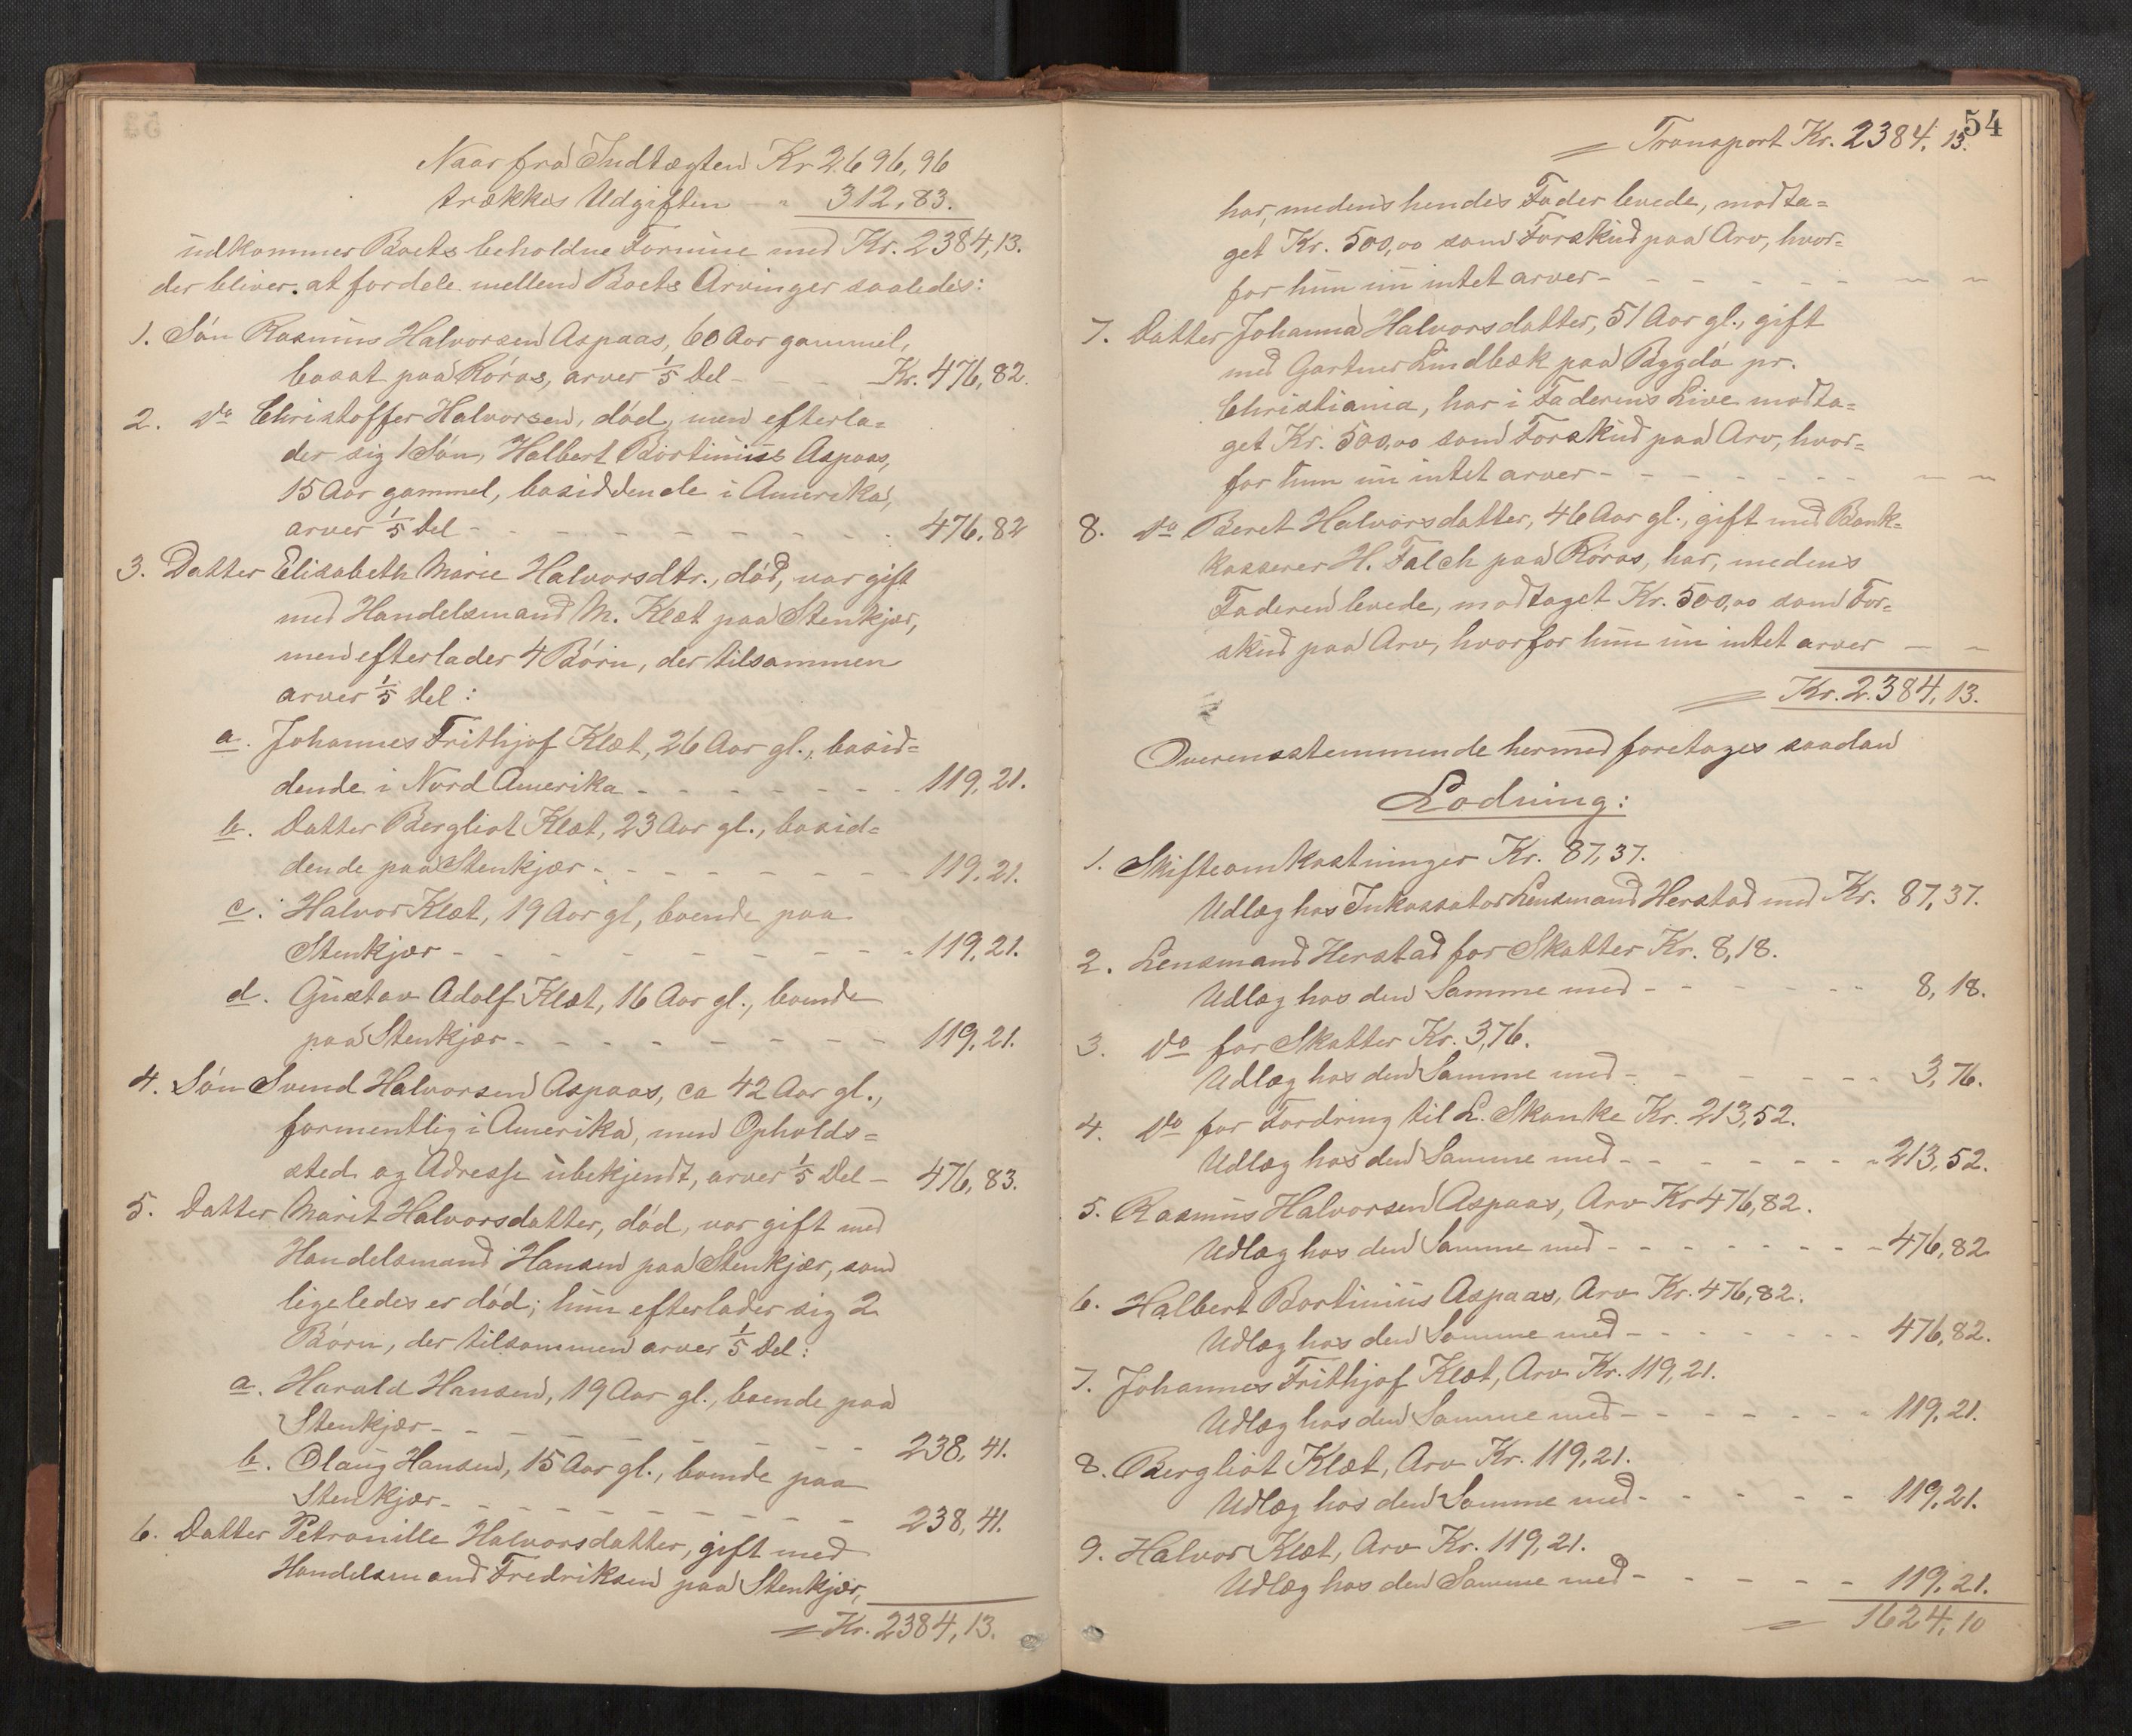 Naar fra Indtægten Kr. 2696,96
trækkes Udgiften " 312,83.
udkommer Boets beholdne Formue med Kr. 2384,13.
der bliver at fordele mellem Boets Arvinger saaledes:
1. Søn Rasmus Halvorsen Aspaas, 60 Aar gammel,
bosat paa Røros, arver 1/5 Del - - - Kr. 476,82.
2. Do Christoffer Halvorsen, død, men efterla=
der sig 1 Søn, Halbert Bortinius Aspaas,
15 Aar gammel, bosiddende i Amerika,
arver 1/5 Del - - - - - - - - - 476,82
3. Datter Elisabeth Marie Halvorsdtr., død, var gift
med Handelsmand M. Klæt paa Stenkjær,
men efterlader 4 Børn, der tilsammen
arver 1/5 Del:
a. Johannes Frithjof Klæt, 26 Aar gl., bosid=
dende i Nord Amerika - - - - - - - 119,21.
b. Datter Bergliot Klæt, 23 Aar gl., bosid=
dende paa Stenkjær - - - - - - - - 119,21.
c. Halvor Klæt, 19 Aar gl, boende paa
Stenkjær - - - - - - - - - - 119,21.
d. Gustav Adolf Klæt, 16 Aar gl., boende
paa Stenkjær - - - - - - - - - 119,21.
4. Søn Svend Halvorsen Aspaas, ca 42 Aar gl.,
formentlig i Amerika, men Opholds=
sted og Adresse ubekjendt, arver 1/5 Del - 476,83.
5. Datter Marit Halvorsdatter, død, var gift med
Handelsmand Hansen paa Stenkjær, som
ligeledes er død; hun efterlader sig 2
Børn, der tilsammen arver 1/5 Del:
a. Harald Hansen, 19 Aar gl., boende paa
Stenkjær - - - - - - - - - - 238,41.
b. Olaug Hansen, 15 Aar gl., boende paa
Stenkjær - - - - - - - - - - 238,41.
6. Datter Petronille Halvorsdatter, gift med
Handelsmand Fredriksen paa Stenkjær,
= Kr. 2384,13.
54
= Transport Kr. 2384,13.
har, medens hendes Fader levede, modta=
get Kr. 500,00 som Forskud paa Arv, hvor=
for hun nu intet arver - - - - - - - - -
7. Datter Johanna Halvorsdatter, 51 Aar gl., gift
med Gartner Lindbæk paa Bygdø pr.
Christiania, har i Faderens Live modta=
get Kr. 500,00 som Forskud paa Arv, hvor=
for hun nu intet arver - - - - - - - - -
8. Do Beret Halvorsdatter, 46 Aar gl., gift med Bank=
kasserer H. Falch paa Røros, har, medens
Faderen levede, modtaget Kr. 500,00 som For=
skud paa Arv, hvorfor hun nu intet arver - -
= Kr. 2384,13.
Overensstemmende hermed foretages saadan
Lodning:
1. Skifteomkostninger Kr. 87,37.
Udlæg hos Inkassator Lensmand Herstad med Kr. 87,37.
2. Lensmand Herstad for Skatter Kr. 8,18.
Udlæg hos den Samme med - - - - - - 8,18.
3. Do for Skatter Kr. 3,76.
Udlæg hos den Samme med - - - - - - 3,76.
4. Do for Fordring til L. Skanke Kr. 213,52.
Udlæg hos den Samme med - - - - - - - 213,52.
5. Rasmus Halvorsen Aspaas, Arv Kr 476,82.
Udlæg hos den Samme med - - - - - - - 476,82
6. Halbert Bortinius Aspaas, Arv Kr. 476,82.
Udlæg hos den Samme med - - - - - - - 476,82.
7. Johannes Frithjof Klæt, Arv Kr. 119,21.
Udlæg hos den Samme med - - - - - - - 119,21.
8. Bergliot Klæt, Arv Kr. 119,21.
Udlæg hos den Samme med - - - - - 119,21.
9. Halvor Klæt, Arv Kr. 119,21.
Udlæg hos den Samme med - - - - - 119,21.
= 1624,10